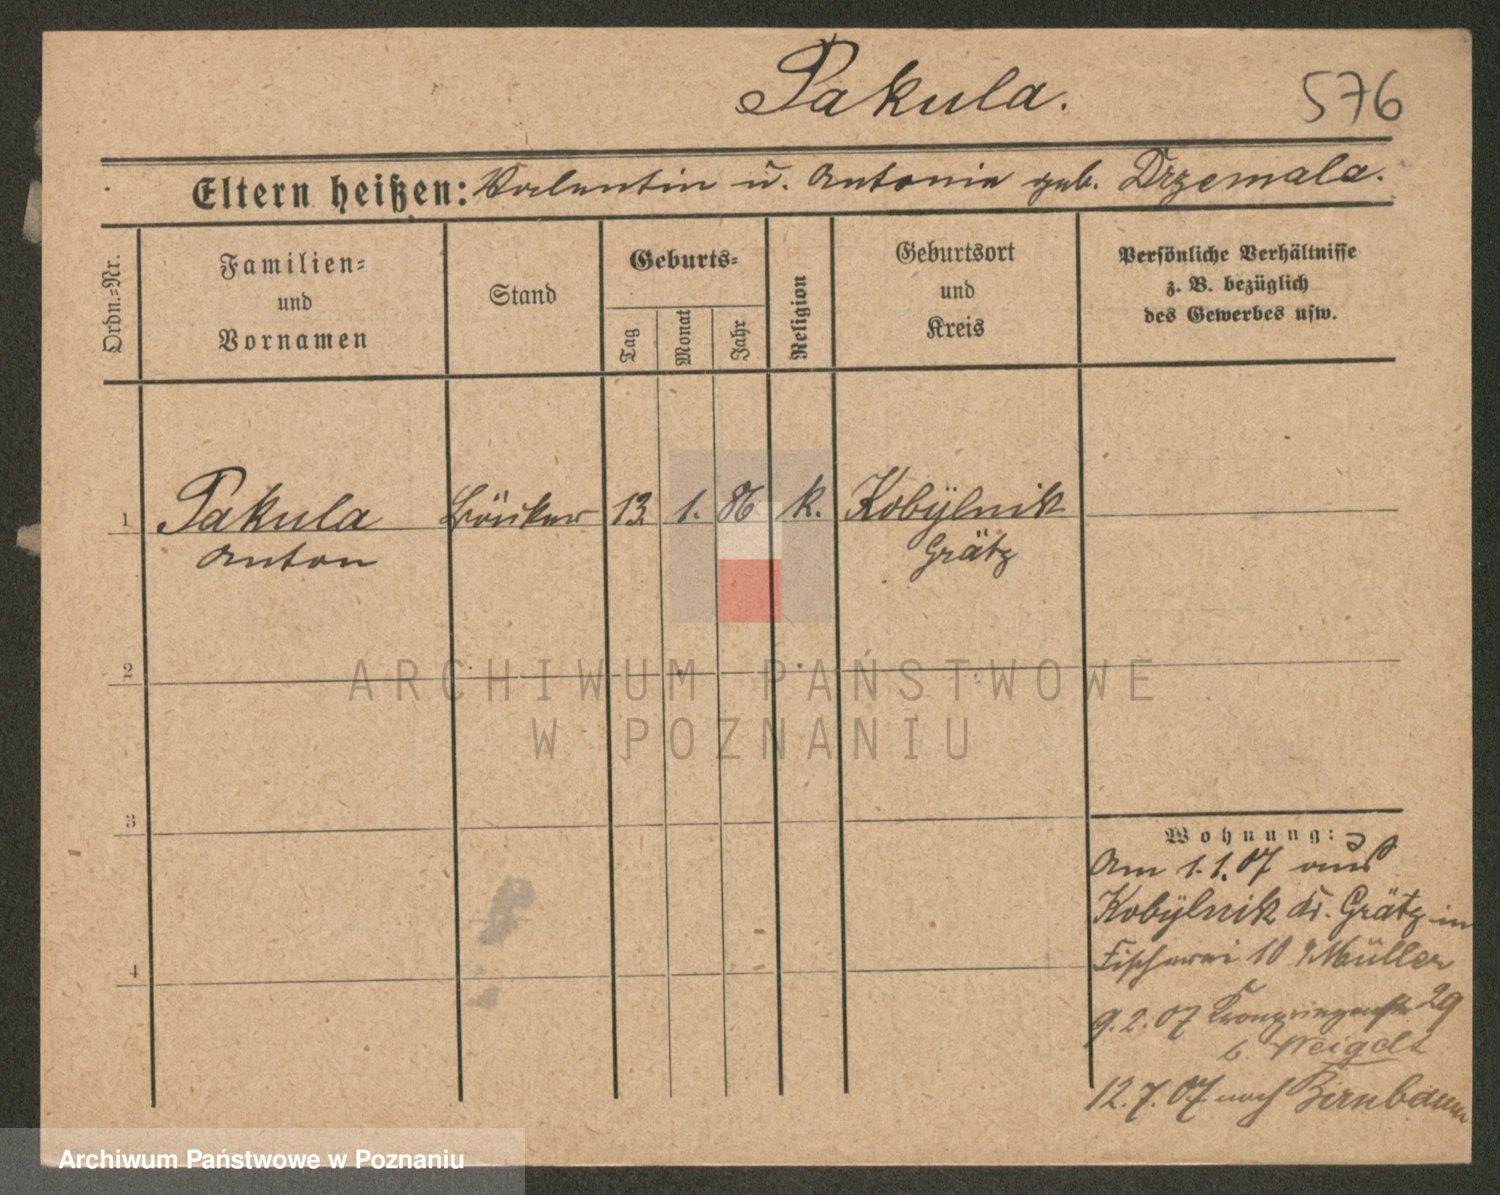 Pakula.
576
Eltern heißen: Valentin u. Antonie geb. Drzemala.
Ordn.-Nr.
Familien-
und
Vornamen
Stand
Geburts-
Tag
Monat
Jahr
Religion
Geburtsort
und
Kreis
Persönliche Verhältnisse
z. B. bezüglich
des Gewerbes usw.
1 Pakula 13. 1. 86 k. Kobÿlnik
Anton Grätz
2
ARCHIWUM PAŃSTWOWE
W POZNANIU
3
4
Wohnung:
Am 1.1.07 aus
Kobÿlnik Kr. Grätz in
Fischerei 10 Müller
9.2.07 Kronprinzenstr 29
b. Weigelt
12.7.07 nach Birnbaum
Archiwum Państwowe w Poznaniu